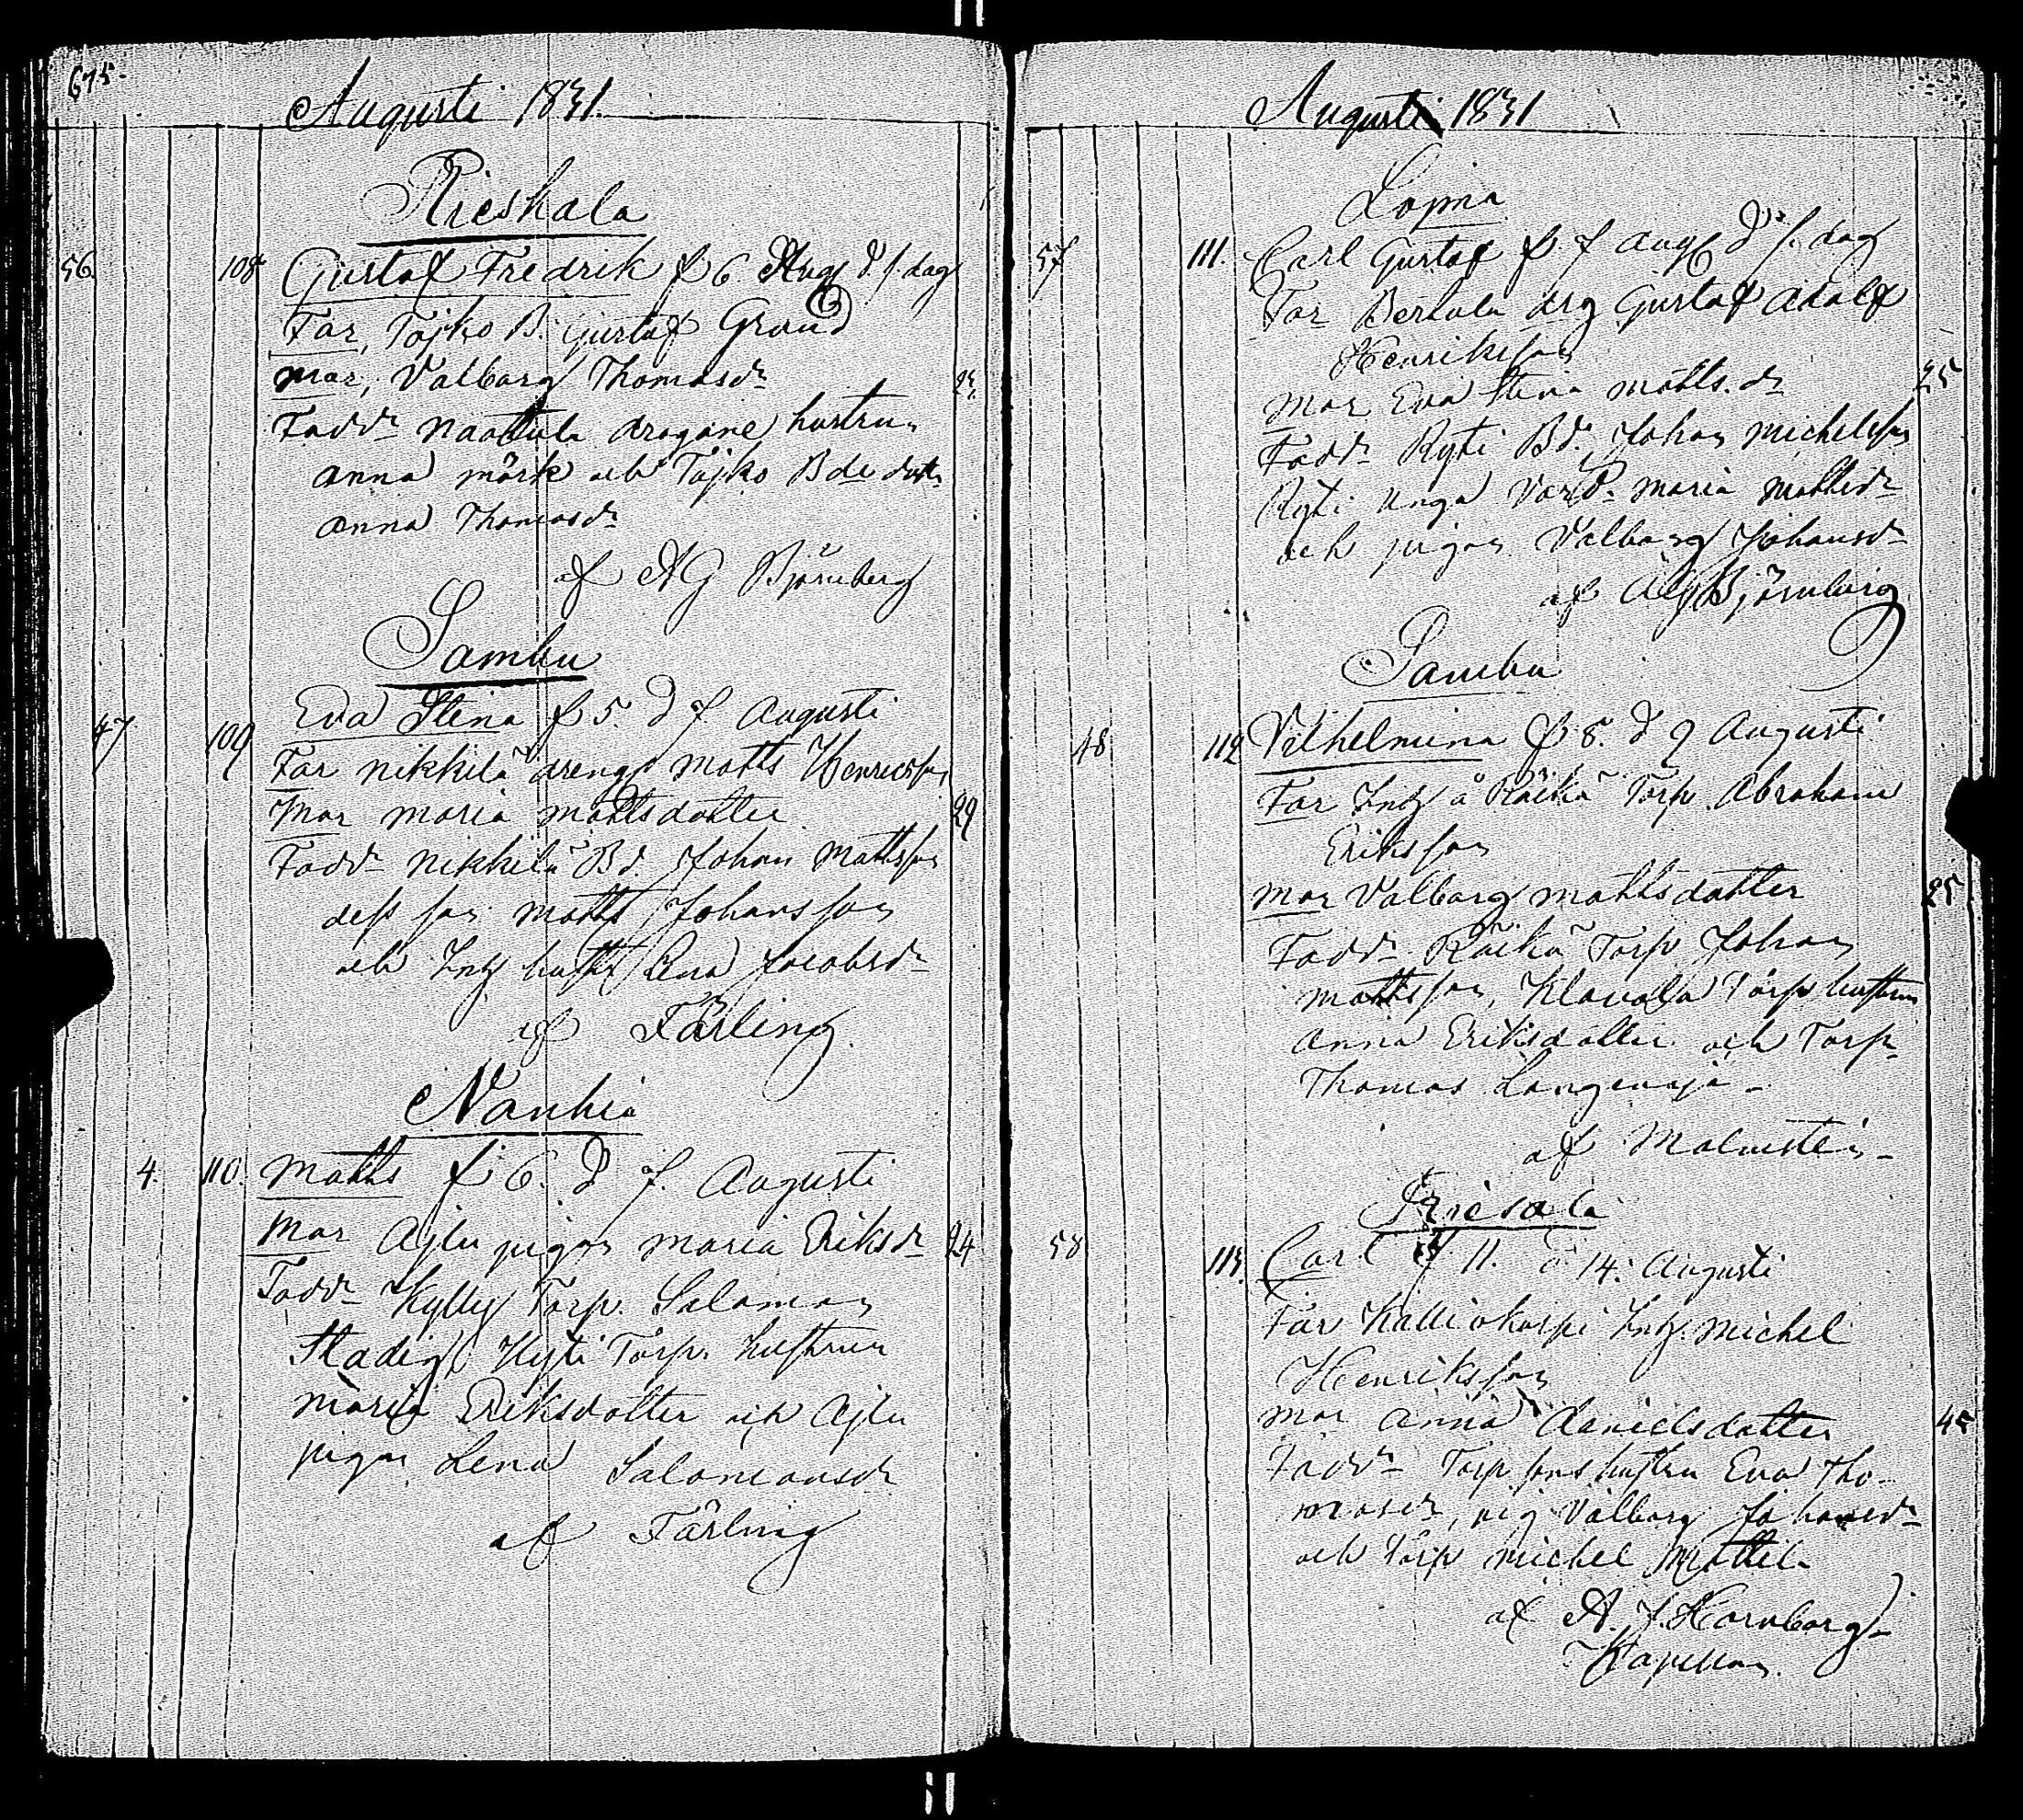 675.
Augusti 1831.
Rieskala
56. 108 Gustaf Fredrik f 6 Aug d. s. dag
Far, Tojko B. Gustaf Grand
Mor, Valborg Thomasdr 23.
Faddr Naattula dragone hustrun
Anna Mörk och Tojko Bde dotr
Anna Thomasdr
af AG Björnberg
Sambu
47 109 Eva Stina f 5. d 7. Augusti
Far Nikkilä dreng Matts Henricsson
Mor Maria Mattsdotter 29
Faddr Nikkilä Bd. Johan Mattsson
dess son Matts Johansson
och Inhy hustr Lena Jacobsdr
af Färling
Nanhia
4. 110. Matts f 6. d 7. Augusti
Mor Ajlu pigan Maria Eriksdr 24
Faddr Kylly Torp. Salomon
Stadig, Kyti Torp. hustrun
Maria Eriksdotter och Ajlu
pigan Lena Salomonsdr
af Färling
Augusti 1831
Loima
57 111. Carl Gustaf f. 7 Aug d s. dag
Far Berkala drg Gustaf Adolf
Henriksson
Mor Eva Stina Matts.dr 25
Faddr Ryti Bd. Johan Michelsson
Ryti unga Vard. Maria Mattsdr
och pigan Valborg Johansdr
af AG Björnberg
Sambu
48 112 Vilhelmina f 8. d 9 Augusti
Far Inhy å Räikä Torp Abraham
Eriksson
Mor Valborg Mattsdotter 25
Faddr Räikä Torp Johan
Mattsson, Klavola Torp hustrun
Anna Eriksdotter och Torp
Thomas
af Malmsten
Friesala
58 113. Carl f 11. d 14. Augusti
Far Kalliokorpi Inhy. Michel
Henriksson
Mor Anna Danielsdotter 45
Faddr Torp sons hustru Eva Tho-
masdr, pig Valborg Johansdr
och Torp Michel Mattila
af A. J. Hornborg
Kapellan.